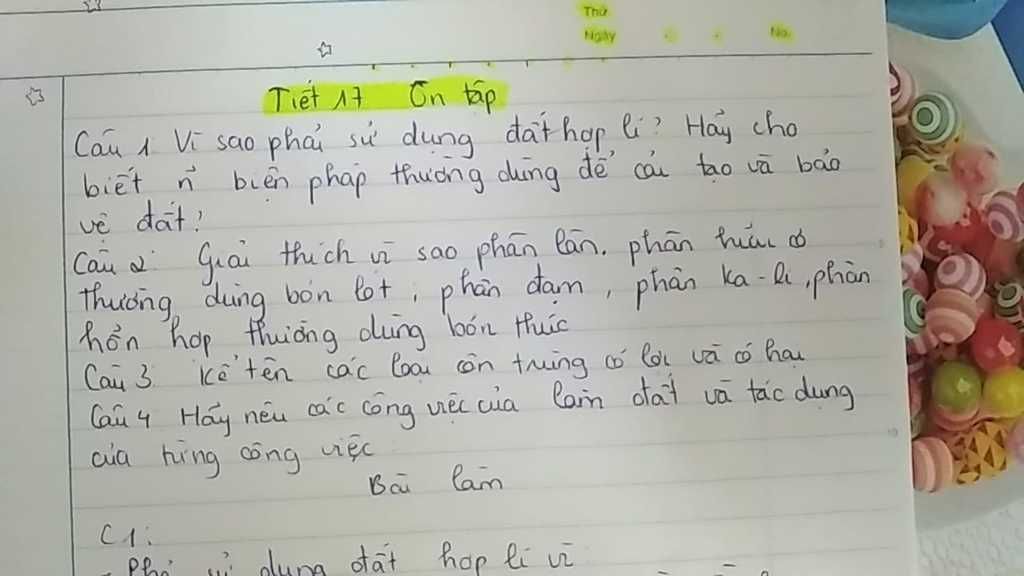 Thứ
Ngày No.
Tiết 17 Ôn tập
Câu 1 Vì sao phải sử dụng đất hợp lí? Hãy cho
biết n~ biện pháp thường dùng để cải tạo và bảo
vệ đất?
Câu 2: Giải thích vì sao phân lân, phân hữu cơ
thường dùng bón lót, phân đạm, phân ka-li, phân
hỗn hợp thường dùng bón thúc
Câu 3: Kể tên các loại côn trùng có lợi và có hại
Câu 4 Hãy nêu các công việc của làm đất và tác dụng
của từng công việc
Bài làm
C1:
- Phải sử dụng đất hợp lí vì